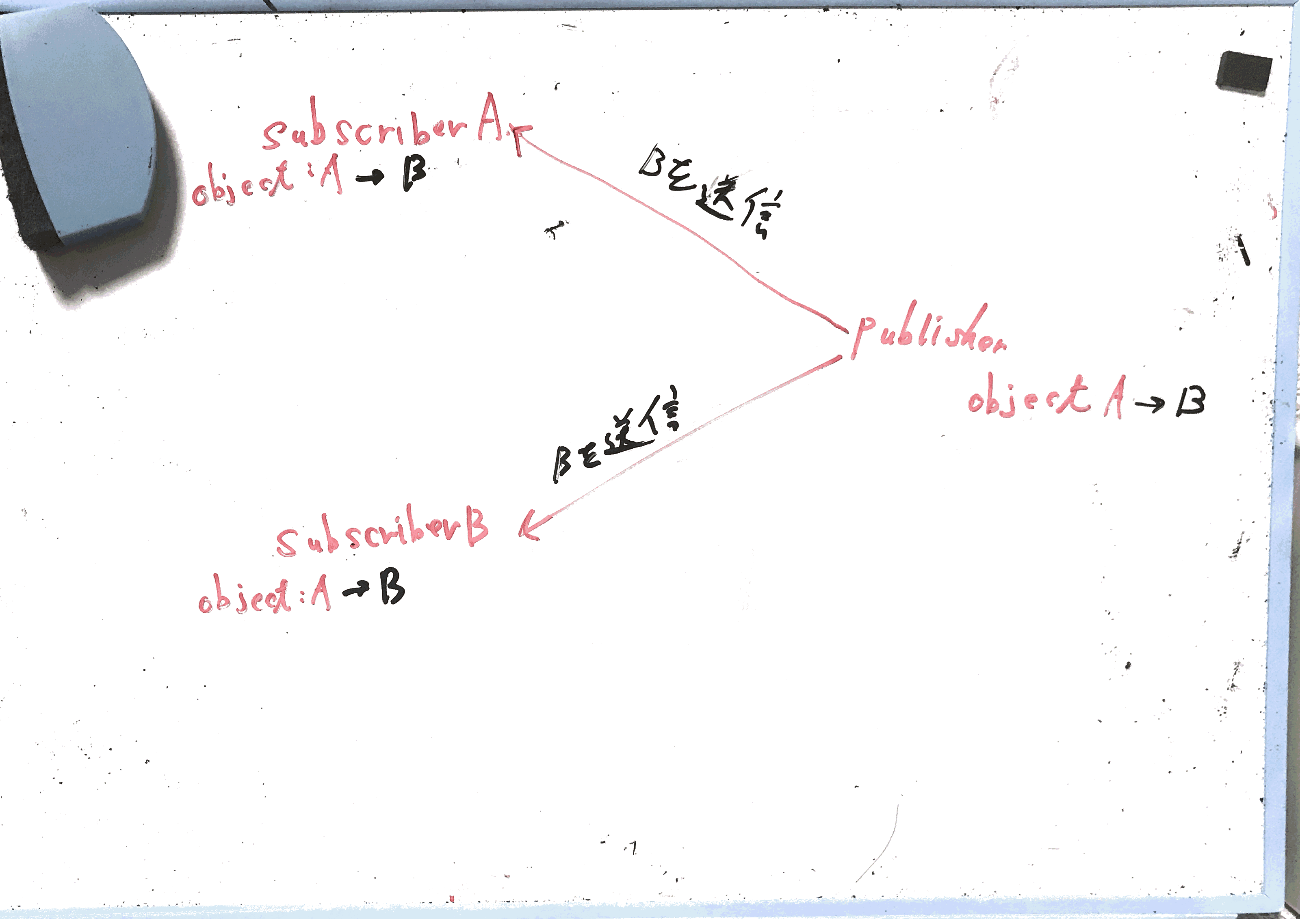 subscriber A
object:A → B
Bを送信
publisher
object A → B
Bを送信
subscriber B
object:A → B